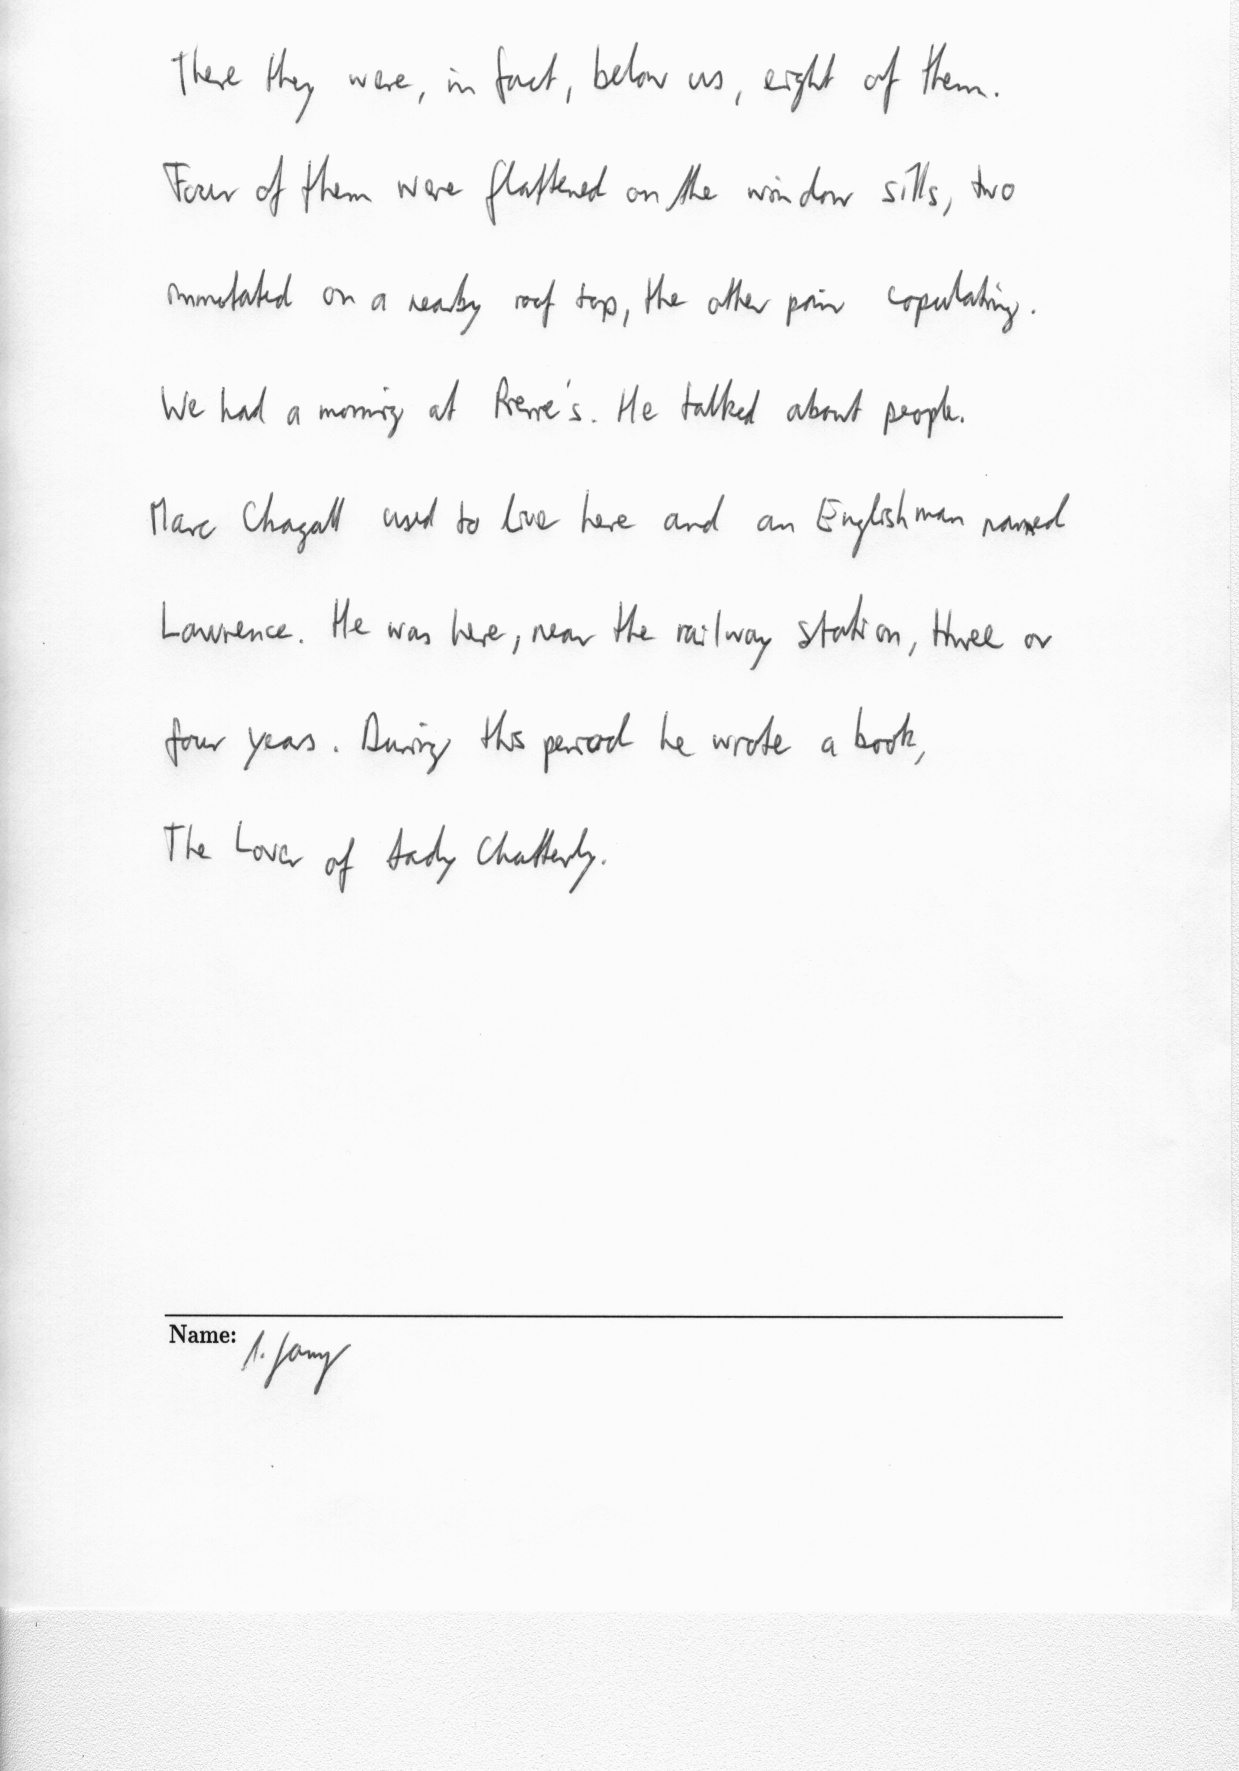 There they were, in fact, below us, eight of them.
Four of them were flattened on the window sills, two
on a nearby roof top, the other pair copulating.
We had a morning at Pierre's. He talked about people.
Marc Chagall used to live here and an Englishman named
Lawrence. He was here, near the railway station, three or
four years. During this period he wrote a book,
The Lover of Lady Chatterly.
Name: